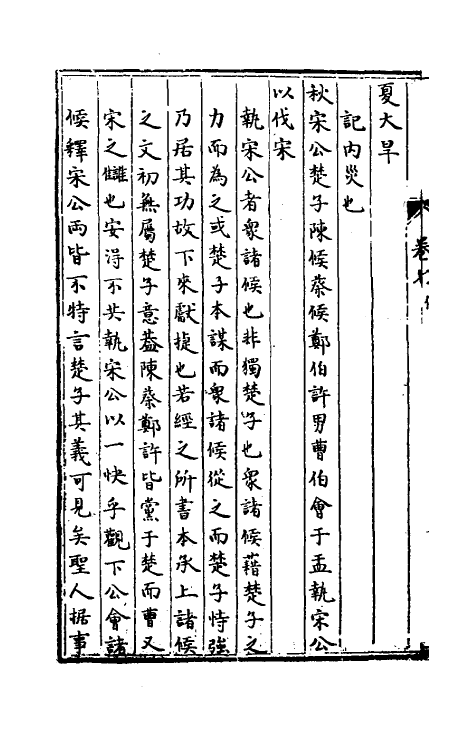 夏大旱
記內災也
秋宋公楚子陳侯蔡侯鄭伯許男曹伯會于盂執宋公
以伐宋
執宋公者衆諸侯也非獨楚子也衆諸侯藉楚子之
力而為之或楚子本謀而衆諸侯從之而楚子恃強
乃居其功故下來獻捷也若經之所書本承上諸侯
之文初無屬楚子意葢陳蔡鄭許皆黨于楚而曹又
宋之讎也安得不共執宋公以一快乎觀下公會諸
侯釋宋公而皆不特言楚子其義可見矣聖人据事